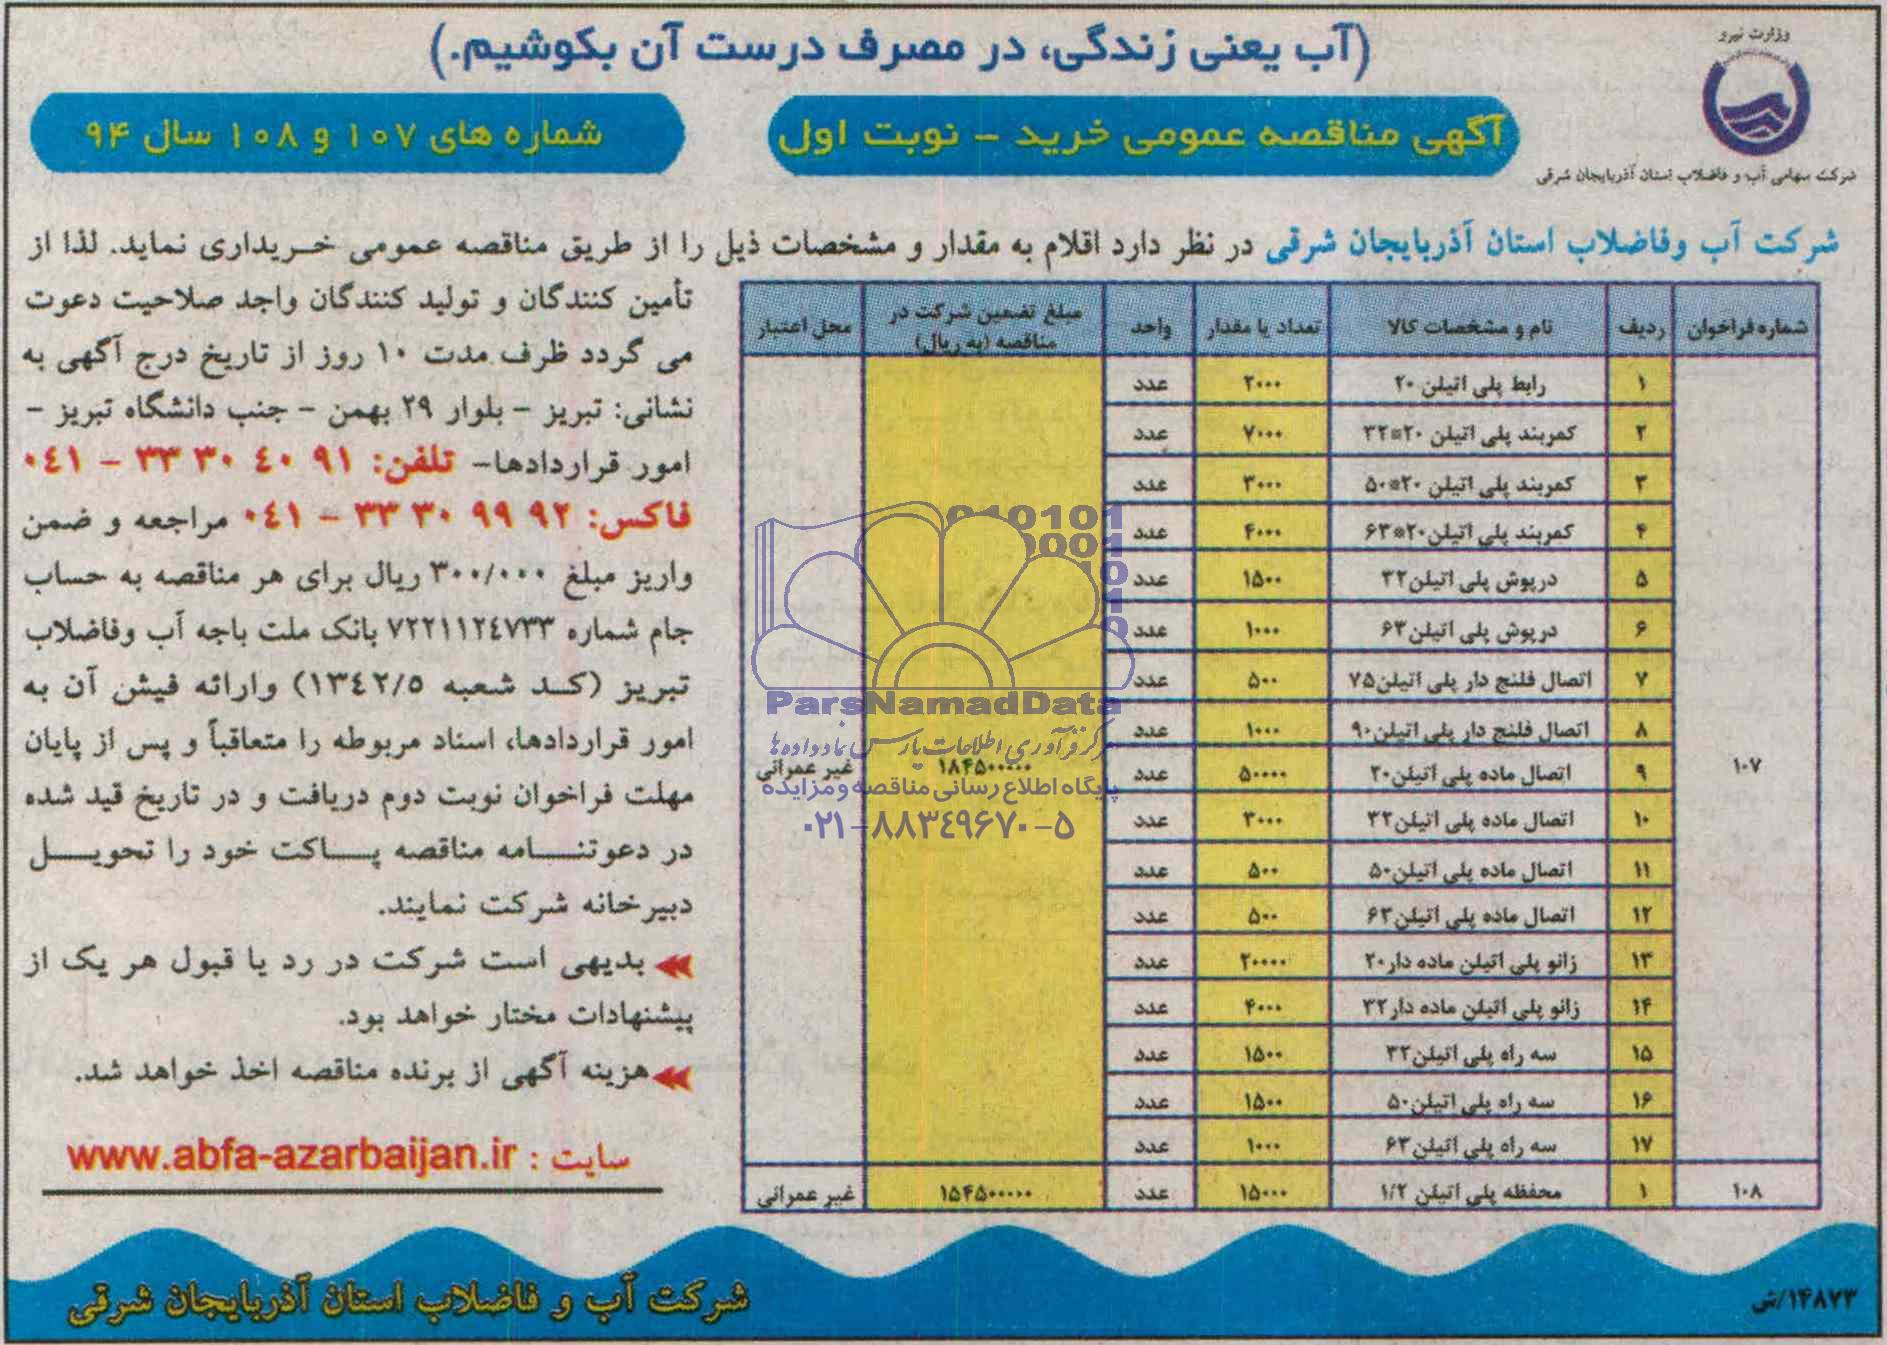 (آب یعنی زندگی، در مصرف درست آن بکوشیم.)
وزارت نیرو
شرکت سهامی آب و فاضلاب استان آذربایجان شرقی
آگهی مناقصه عمومی خرید - نوبت اول
شماره های ۱۰۷ و ۱۰۸ سال ۹۴
شرکت آب وفاضلاب استان آذربایجان شرقی در نظر دارد اقلام به مقدار و مشخصات ذیل را از طریق مناقصه عمومی خـریداری نماید. لذا از
تأمین کنندگان و تولید کنندگان واجد صلاحیت دعوت
می گردد ظرف مدت ۱۰ روز از تاریخ درج آگهی به
نشانی: تبریز - بلوار ۲۹ بهمن - جنب دانشگاه تبریز -
امور قراردادها- تلفن: ۹۱ ۴۰ ۳۰ ۳۳ - ۰۴۱
فاکس: ۹۲ ۹۹ ۳۰ ۳۳ - ۰۴۱ مراجعه و ضمن
واریز مبلغ ۳۰۰/۰۰۰ ریال برای هر مناقصه به حساب
جام شماره ۷۲۲۱۱۲۴۷۳۳ بانک ملت باجه آب وفاضلاب
تبریز (کـد شعبه ۱۳۴۲/۵) وارائه فیش آن به
امور قراردادها، اسناد مربوطه را متعاقباً و پس از پایان
مهلت فراخوان نوبت دوم دریافت و در تاریخ قید شده
در دعوتنـــامه مناقصه پـــاکت خود را تحویـــل
دبیرخانه شرکت نمایند.
بدیهی است شرکت در رد یا قبول هر یک از
پیشنهادات مختار خواهد بود.
هزینه آگهی از برنده مناقصه اخذ خواهد شد.
سایت : www.abfa-azarbaijan.ir
شماره فراخوان ردیف نام و مشخصات کالا تعداد یا مقدار واحد مبلغ تضمین شرکت در مناقصه (به ریال) محل اعتبار
۱ رابط پلی اتیلن ۲۰ ۲۰۰۰ عدد
۲ کمربند پلی اتیلن ۲۰*۳۲ ۷۰۰۰ عدد
۳ کمربند پلی اتیلن ۲۰*۵۰ ۳۰۰۰ عدد
۴ کمربند پلی اتیلن۲۰*۶۳ ۴۰۰۰ عدد
۵ درپوش پلی اتیلن۳۲ ۱۵۰۰ عدد
۶ درپوش پلی اتیلن۶۳ ۱۰۰۰ عدد
۷ اتصال فلنج دار پلی اتیلن۷۵ ۵۰۰ عدد
۸ اتصال فلنج دار پلی اتیلن۹۰ ۱۰۰۰ عدد
۱۰۷ ۹ اتصال ماده پلی اتیلن۲۰ ۵۰۰۰۰ عدد ۱۸۴۵۰۰۰۰۰ غیر عمرانی
۱۰ اتصال ماده پلی اتیلن۳۲ ۳۰۰۰ عدد
۱۱ اتصال ماده پلی اتیلن۵۰ ۵۰۰ عدد
۱۲ اتصال ماده پلی اتیلن۶۳ ۵۰۰ عدد
۱۳ زانو پلی اتیلن ماده دار۲۰ ۲۰۰۰۰ عدد
۱۴ زانو پلی اتیلن ماده دار۳۲ ۴۰۰۰ عدد
۱۵ سه راه پلی اتیلن۳۲ ۱۵۰۰ عدد
۱۶ سه راه پلی اتیلن۵۰ ۱۵۰۰ عدد
۱۷ سه راه پلی اتیلن۶۳ ۱۰۰۰ عدد
۱۰۸ ۱ محفظه پلی اتیلن ۱/۲ ۱۵۰۰۰ عدد ۱۵۴۵۰۰۰۰۰ غیر عمرانی
ParsNamadData
مرکز فرآوری اطلاعات پارس نماد داده ها
پایگاه اطلاع رسانی مناقصه و مزایده
۰۲۱-۸۸۳۴۹۶۷۰-۵
شرکت آب و فاضلاب استان آذربایجان شرقی
۱۴۸۷۳/ش